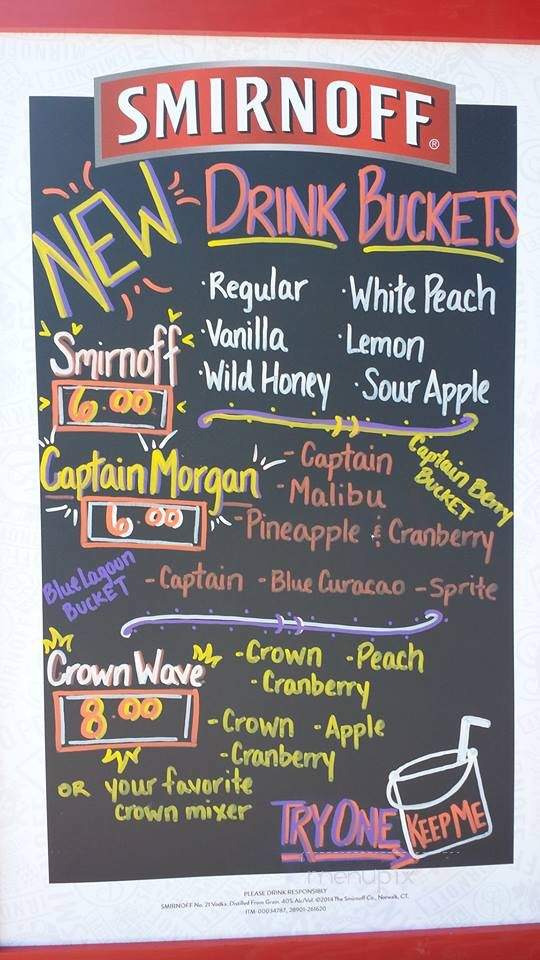 SMIRNOFF®
NEW DRINK BUCKETS
·Regular ·White Peach
·Vanilla ·Lemon
·Wild Honey ·Sour Apple
Smirnoff
6.00
Captain Morgan
6.00
- Captain
- Malibu
- Pineapple & Cranberry
Captain Berry
BUCKET
Blue Lagoun
BUCKET
- Captain - Blue Curacao - Sprite
Crown Wave
8.00
- Crown - Peach
- Cranberry
- Crown - Apple
- Cranberry
OR your favorite
crown mixer
TRY ONE
KEEP ME
menupix
PLEASE DRINK RESPONSIBLY
SMIRNOFF No. 21 Vodka. Distilled From Grain. 40% Alc/Vol. ©2014 The Smirnoff Co., Norwalk, CT.
ITM-00034787, 28901-261620